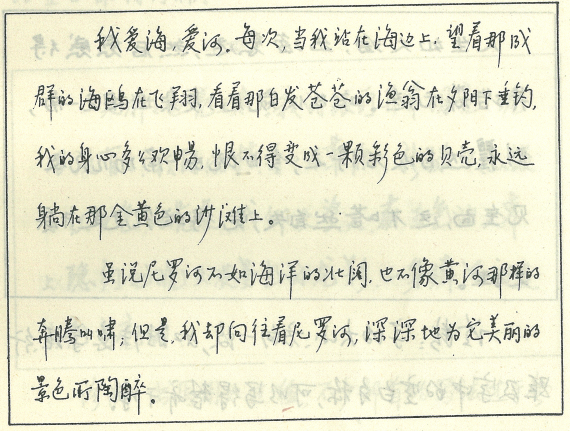 我爱海,爱河。每次,当我站在海边上,望着那成
群的海鸥在飞翔,看着那白发苍苍的渔翁在夕阳下垂钓,
我的身心多么欢畅,恨不得变成一颗彩色的贝壳,永远
躺在那金黄色的沙滩上。
虽说尼罗河不如海洋的壮阔,也不像黄河那样的
奔腾叫啸,但是,我却向往着尼罗河,深深地为它美丽的
景色所陶醉。